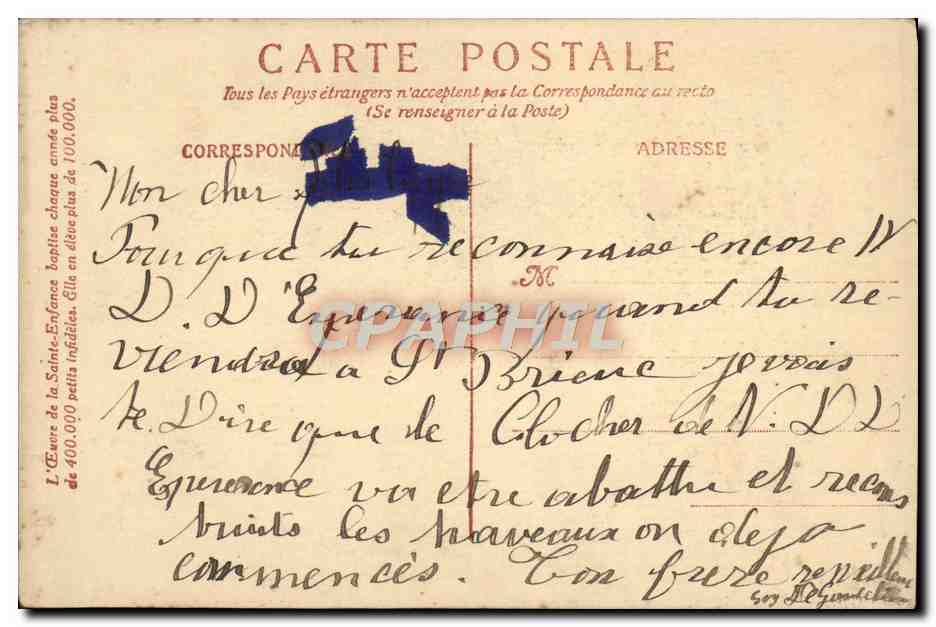 CARTE POSTALE
Tous les Pays étrangers n'acceptent pas la Correspondance au recto
(Se renseigner à la Poste)
CORRESPOND
ADRESSE
L'Œuvre de la Sainte-Enfance baptise chaque année plus
de 400.000 petits infidèles. Elle en élève plus de 100.000.
M
CPAPHIL
Mon cher
Pour que tu reconnaise encore N
D. D'Eperance quand tu re-
viendra a St Brieuc je vais
te Dire que le Clocher de N. D D
Eperence va etre abattu et recons
truits les traveaux on deja
commencés. Ton frere